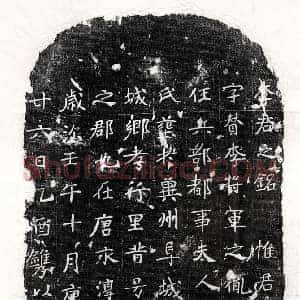 李君之銘 惟君
字賛李將軍之胤
任兵部都事夫人
氏冀州阜城
城鄉孝行里昔号
之郡也在唐水淳
歲次壬午十月庚
廿六日乙酉以